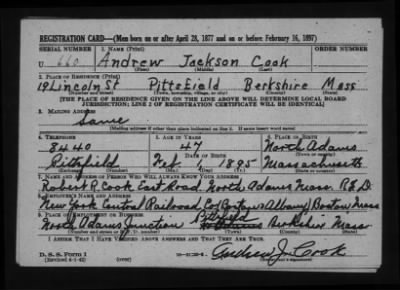 REGISTRATION CARD—(Men born on or after April 28, 1877 and on or before February 16, 1897)
SERIAL NUMBER 1. NAME (Print) ORDER NUMBER
U 660 Andrew Jackson Cook
(First) (Middle) (Last)
2. PLACE OF RESIDENCE (Print)
19 Lincoln St Pittsfield Berkshire Mass
(Number and street) (Town, township, village, or city) (County) (State)
[THE PLACE OF RESIDENCE GIVEN ON THE LINE ABOVE WILL DETERMINE LOCAL BOARD
JURISDICTION; LINE 2 OF REGISTRATION CERTIFICATE WILL BE IDENTICAL]
3. MAILING ADDRESS
Same
[Mailing address if other than place indicated on line 2. If same insert word same]
4. TELEPHONE 5. AGE IN YEARS 6. PLACE OF BIRTH
8440 47 North Adams
DATE OF BIRTH
Pittsfield Feb 1 1895 Massachusetts
7. NAME AND ADDRESS OF PERSON WHO WILL ALWAYS KNOW YOUR ADDRESS
Robert R. Cook East Road North Adams Mass. R.F.D.
8. EMPLOYER'S NAME AND ADDRESS
New York Central Railroad Co Boston & Albany Boston Mass
9. PLACE OF EMPLOYMENT OR BUSINESS
Pittsfield
North Adams Junction Berkshire Mass
I AFFIRM THAT I HAVE VERIFIED ABOVE ANSWERS AND THAT THEY ARE TRUE.
D. S. S. Form 1
(Revised 4-1-42) (over) Andrew J. Cook